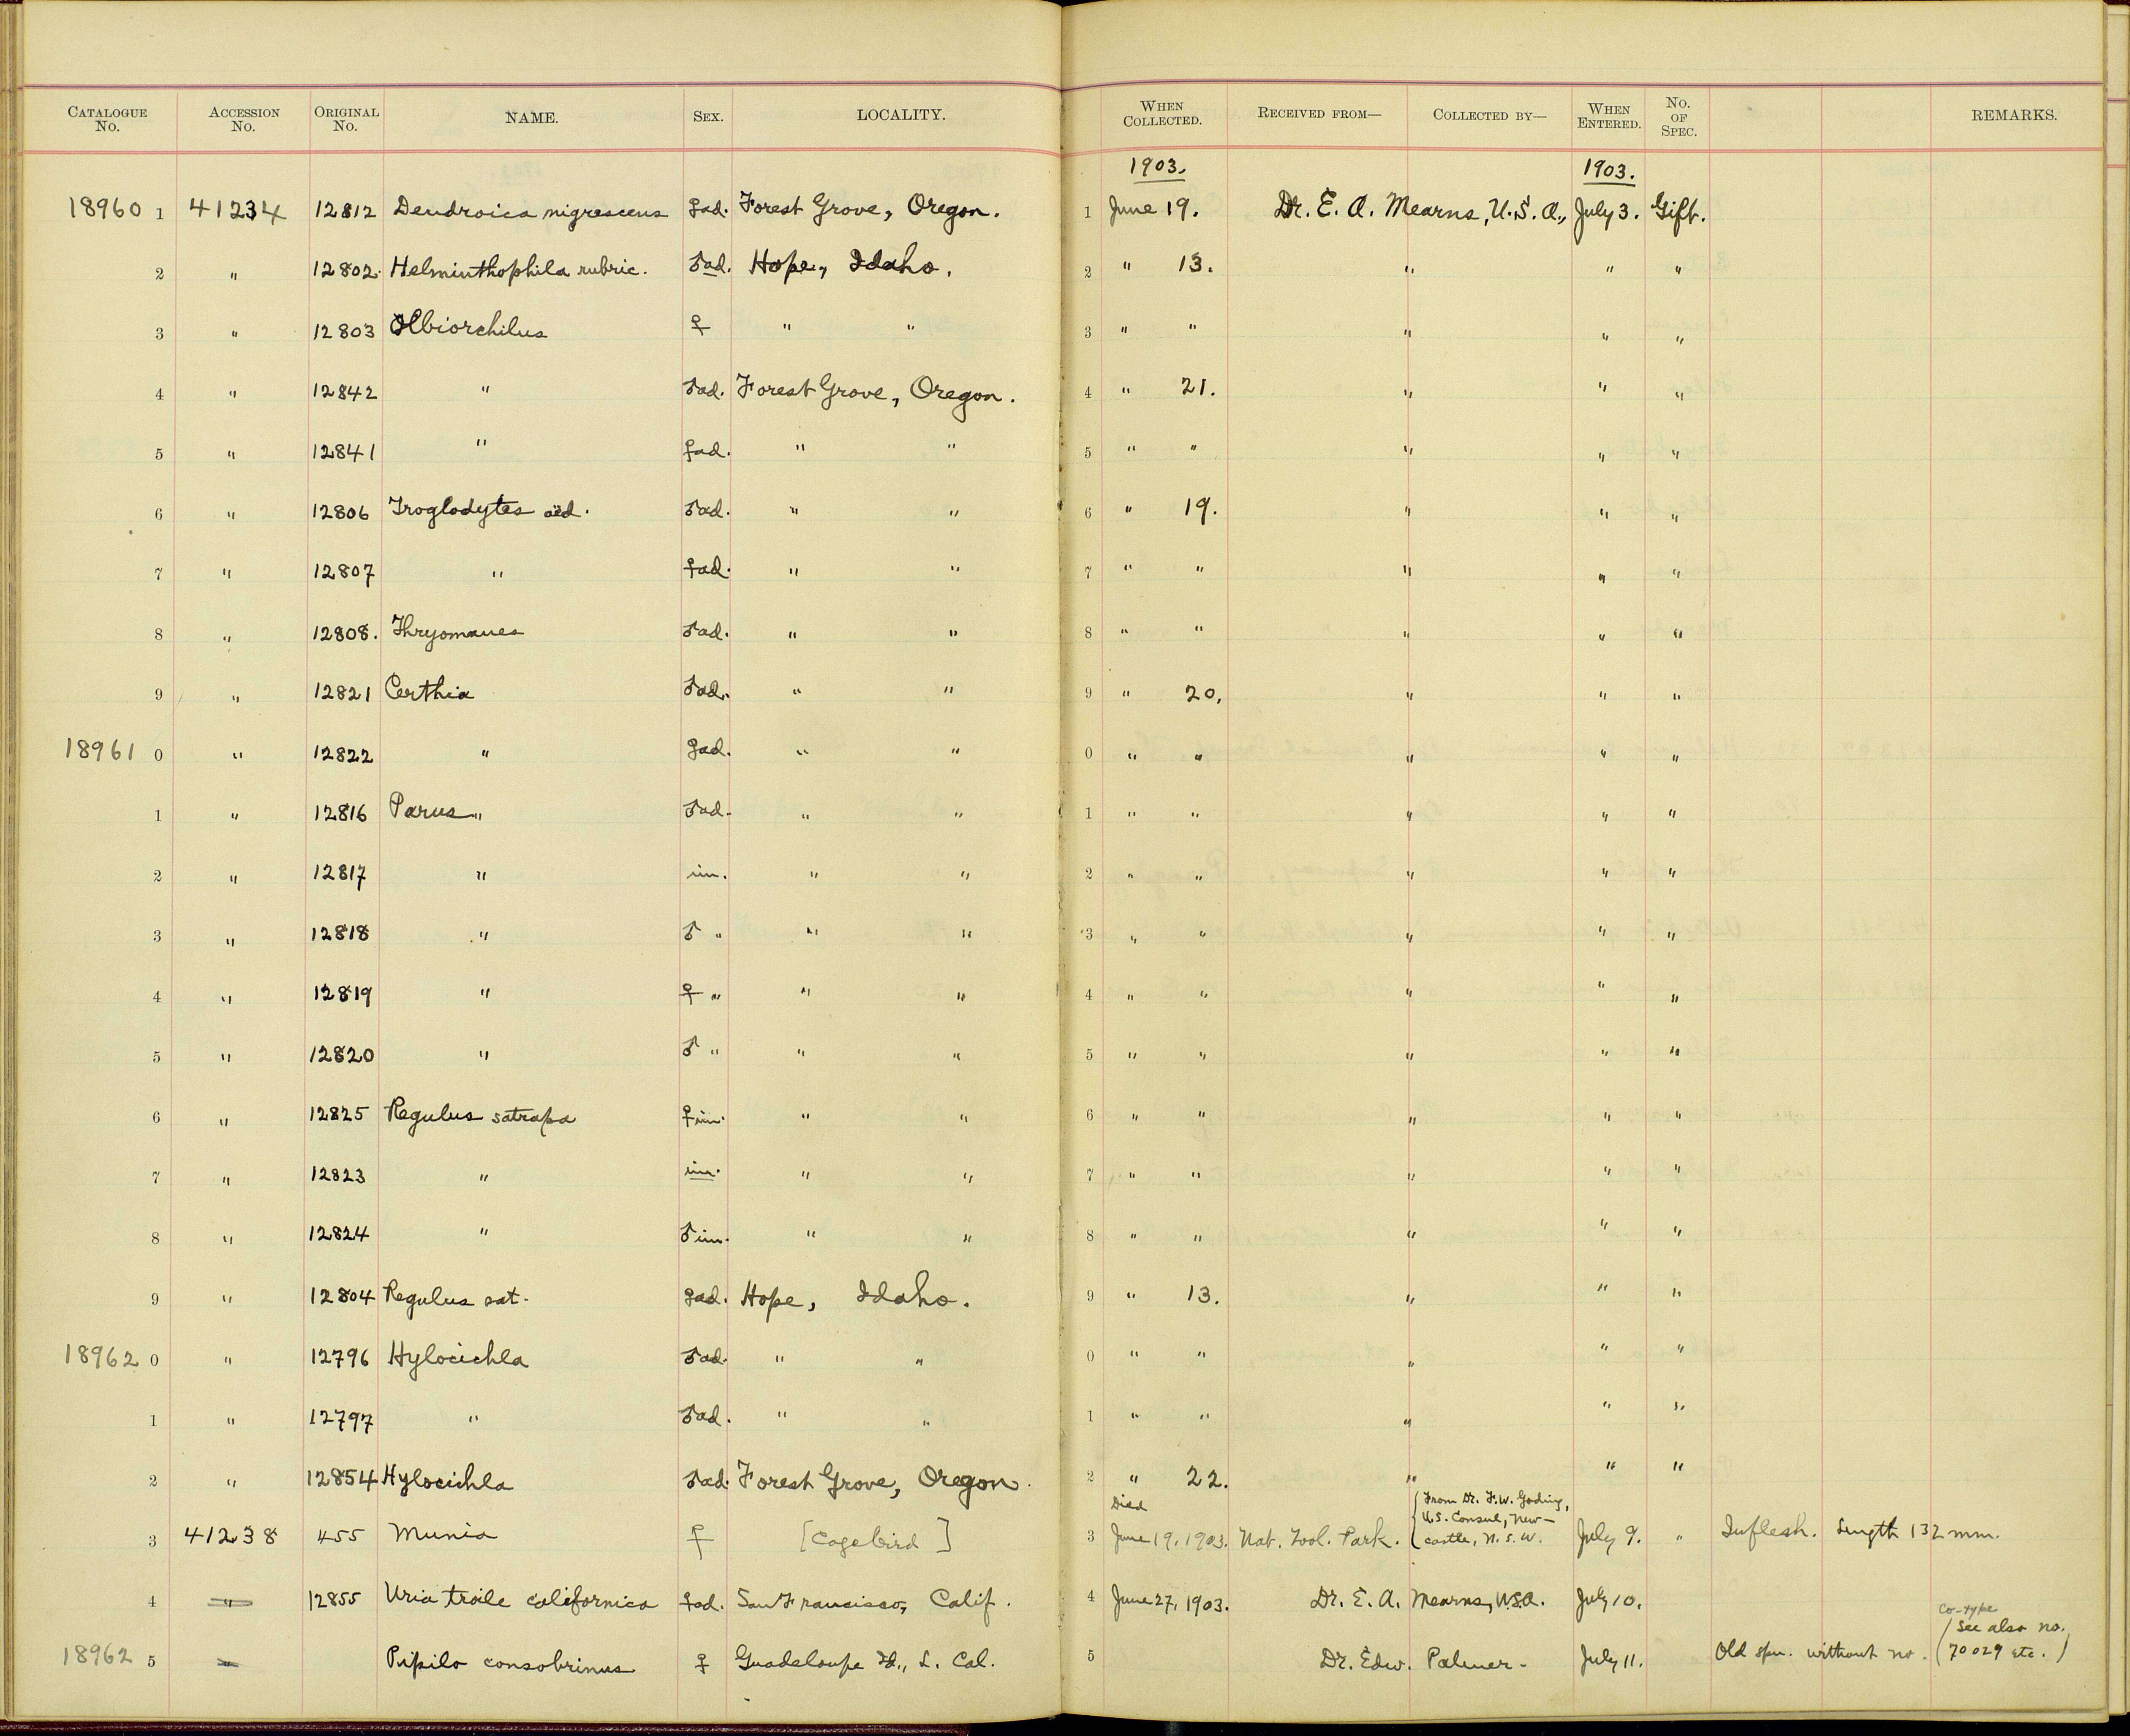 CATALOGUE No. ACCESSION No. ORIGINAL No. NAME. SEX. LOCALITY. WHEN COLLECTED. RECEIVED FROM— COLLECTED BY— WHEN ENTERED. No. OF SPEC. REMARKS.
1903. 1903.
18960 1 41234 12812 Dendroica nigrescens ♀ad. Forest Grove, Oregon. 1 June 19. Dr. E. A. Mearns, U.S.A., July 3. Gift.
2 " 12802. Helminthophila rubric. ♂ad. Hope, Idaho. 2 " 13. " " "
3 " 12803 Olbiorchilus ♀ " " 3 " " " " "
4 " 12842 " ♂ad. Forest Grove, Oregon. 4 " 21. " " "
5 " 12841 " ♀ad. " " 5 " " " " "
6 " 12806 Troglodytes aëd. ♂ad. " " 6 " 19. " " "
7 " 12807 " ♀ad. " " 7 " " " " "
8 " 12808. Thryomanes ♂ad. " " 8 " " " " "
9 " 12821 Certhia ♂ad. " " 9 " 20. " " "
18961 0 " 12822 " ♀ad. " " 0 " " " " "
1 " 12816 Parus " ♂ad. " " 1 " " " " "
2 " 12817 " im. " " 2 " " " " "
3 " 12818 " ♂ " " " 3 " " " " "
4 " 12819 " ♀ " " " 4 " " " " "
5 " 12820 " ♂ " " " 5 " " " " "
6 " 12825 Regulus satrapa ♀im. " " 6 " " " " "
7 " 12823 " im. " " 7 " " " " "
8 " 12824 " ♂im. " " 8 " " " " "
9 " 12804 Regulus sat. ♀ad. Hope, Idaho. 9 " 13. " " "
18962 0 " 12796 Hylocichla ♂ad. " " 0 " " " " "
1 " 12797 " ♂ad. " " 1 " " " " "
2 " 12854 Hylocichla ♂ad. Forest Grove, Oregon. 2 " 22. " " "
3 41238 455 Munia ♀ [Cage bird] 3 Died June 19, 1903. Nat. Zool. Park. { From Dr. F.W. Goding, U.S. Consul, New-castle, N.S.W. July 9. " In flesh. Length 132 mm.
4 " 12855 Uria troile californica ♀ad. San Francisco, Calif. 4 June 27, 1903. Dr. E. A. Mearns, U.S.A. July 10.
18962 5 Pipilo consobrinus ♀ Guadeloupe Id., L. Cal. 5 Dr. Edw. Palmer - July 11. Old spn. without no. Co-type (See also no. 70029 etc.)